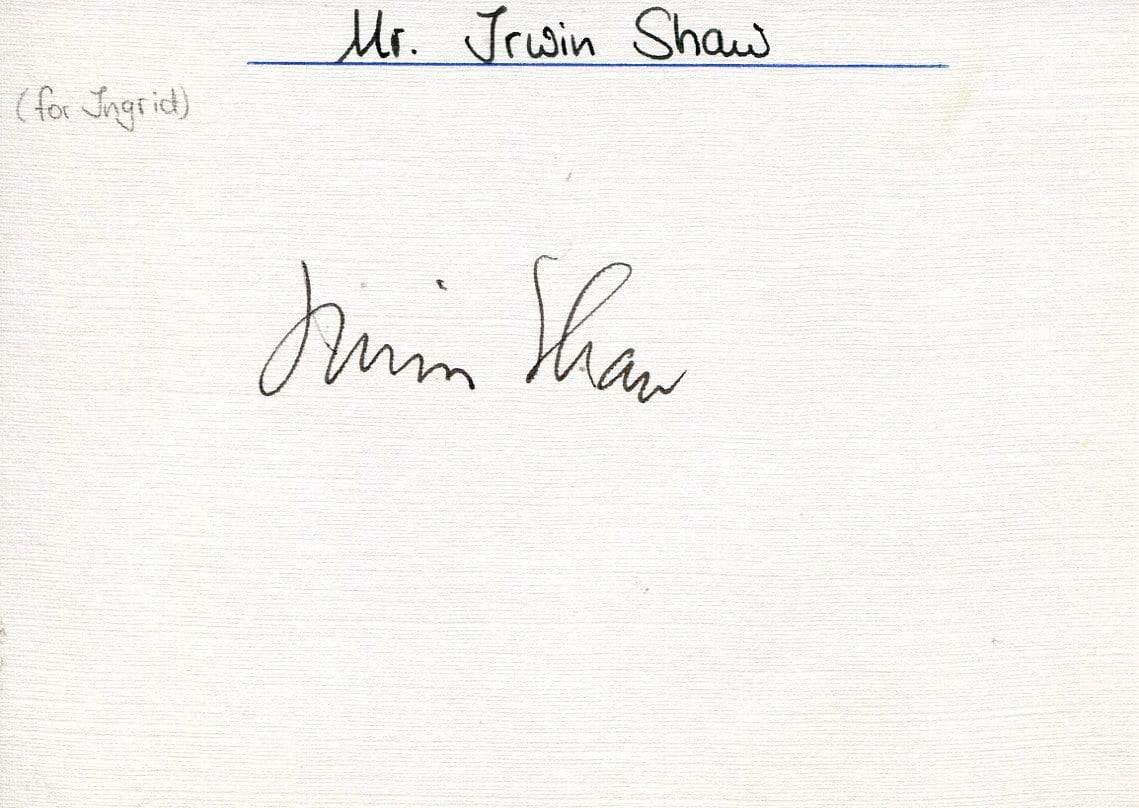 Mr. Irwin Shaw
(for Ingrid)
Irwin Shaw